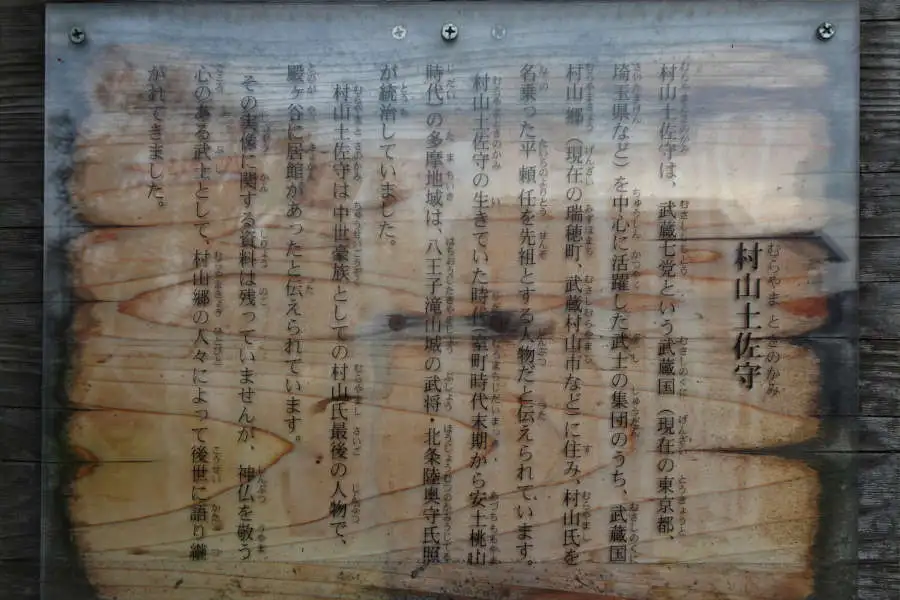 村山土佐守
村山土佐守は、武蔵七党という武蔵国（現在の東京都、
埼玉県など）を中心に活躍した武士の集団のうち、武蔵国
村山郷（現在の瑞穂町、武蔵村山市など）に住み、村山氏を
名乗った平 頼任を先祖とする人物だと伝えられています。
村山土佐守の生きていた時代（室町時代末期から安土桃山
時代）の多摩地域は、八王子滝山城の武将・北条陸奥守氏照
が統治していました。
村山土佐守は中世豪族としての村山氏最後の人物で、
殿ヶ谷に居館があったと伝えられています。
その実像に関する資料は残っていませんが、神仏を敬う
心のある武士として、村山郷の人々によって後世に語り継
がれてきました。